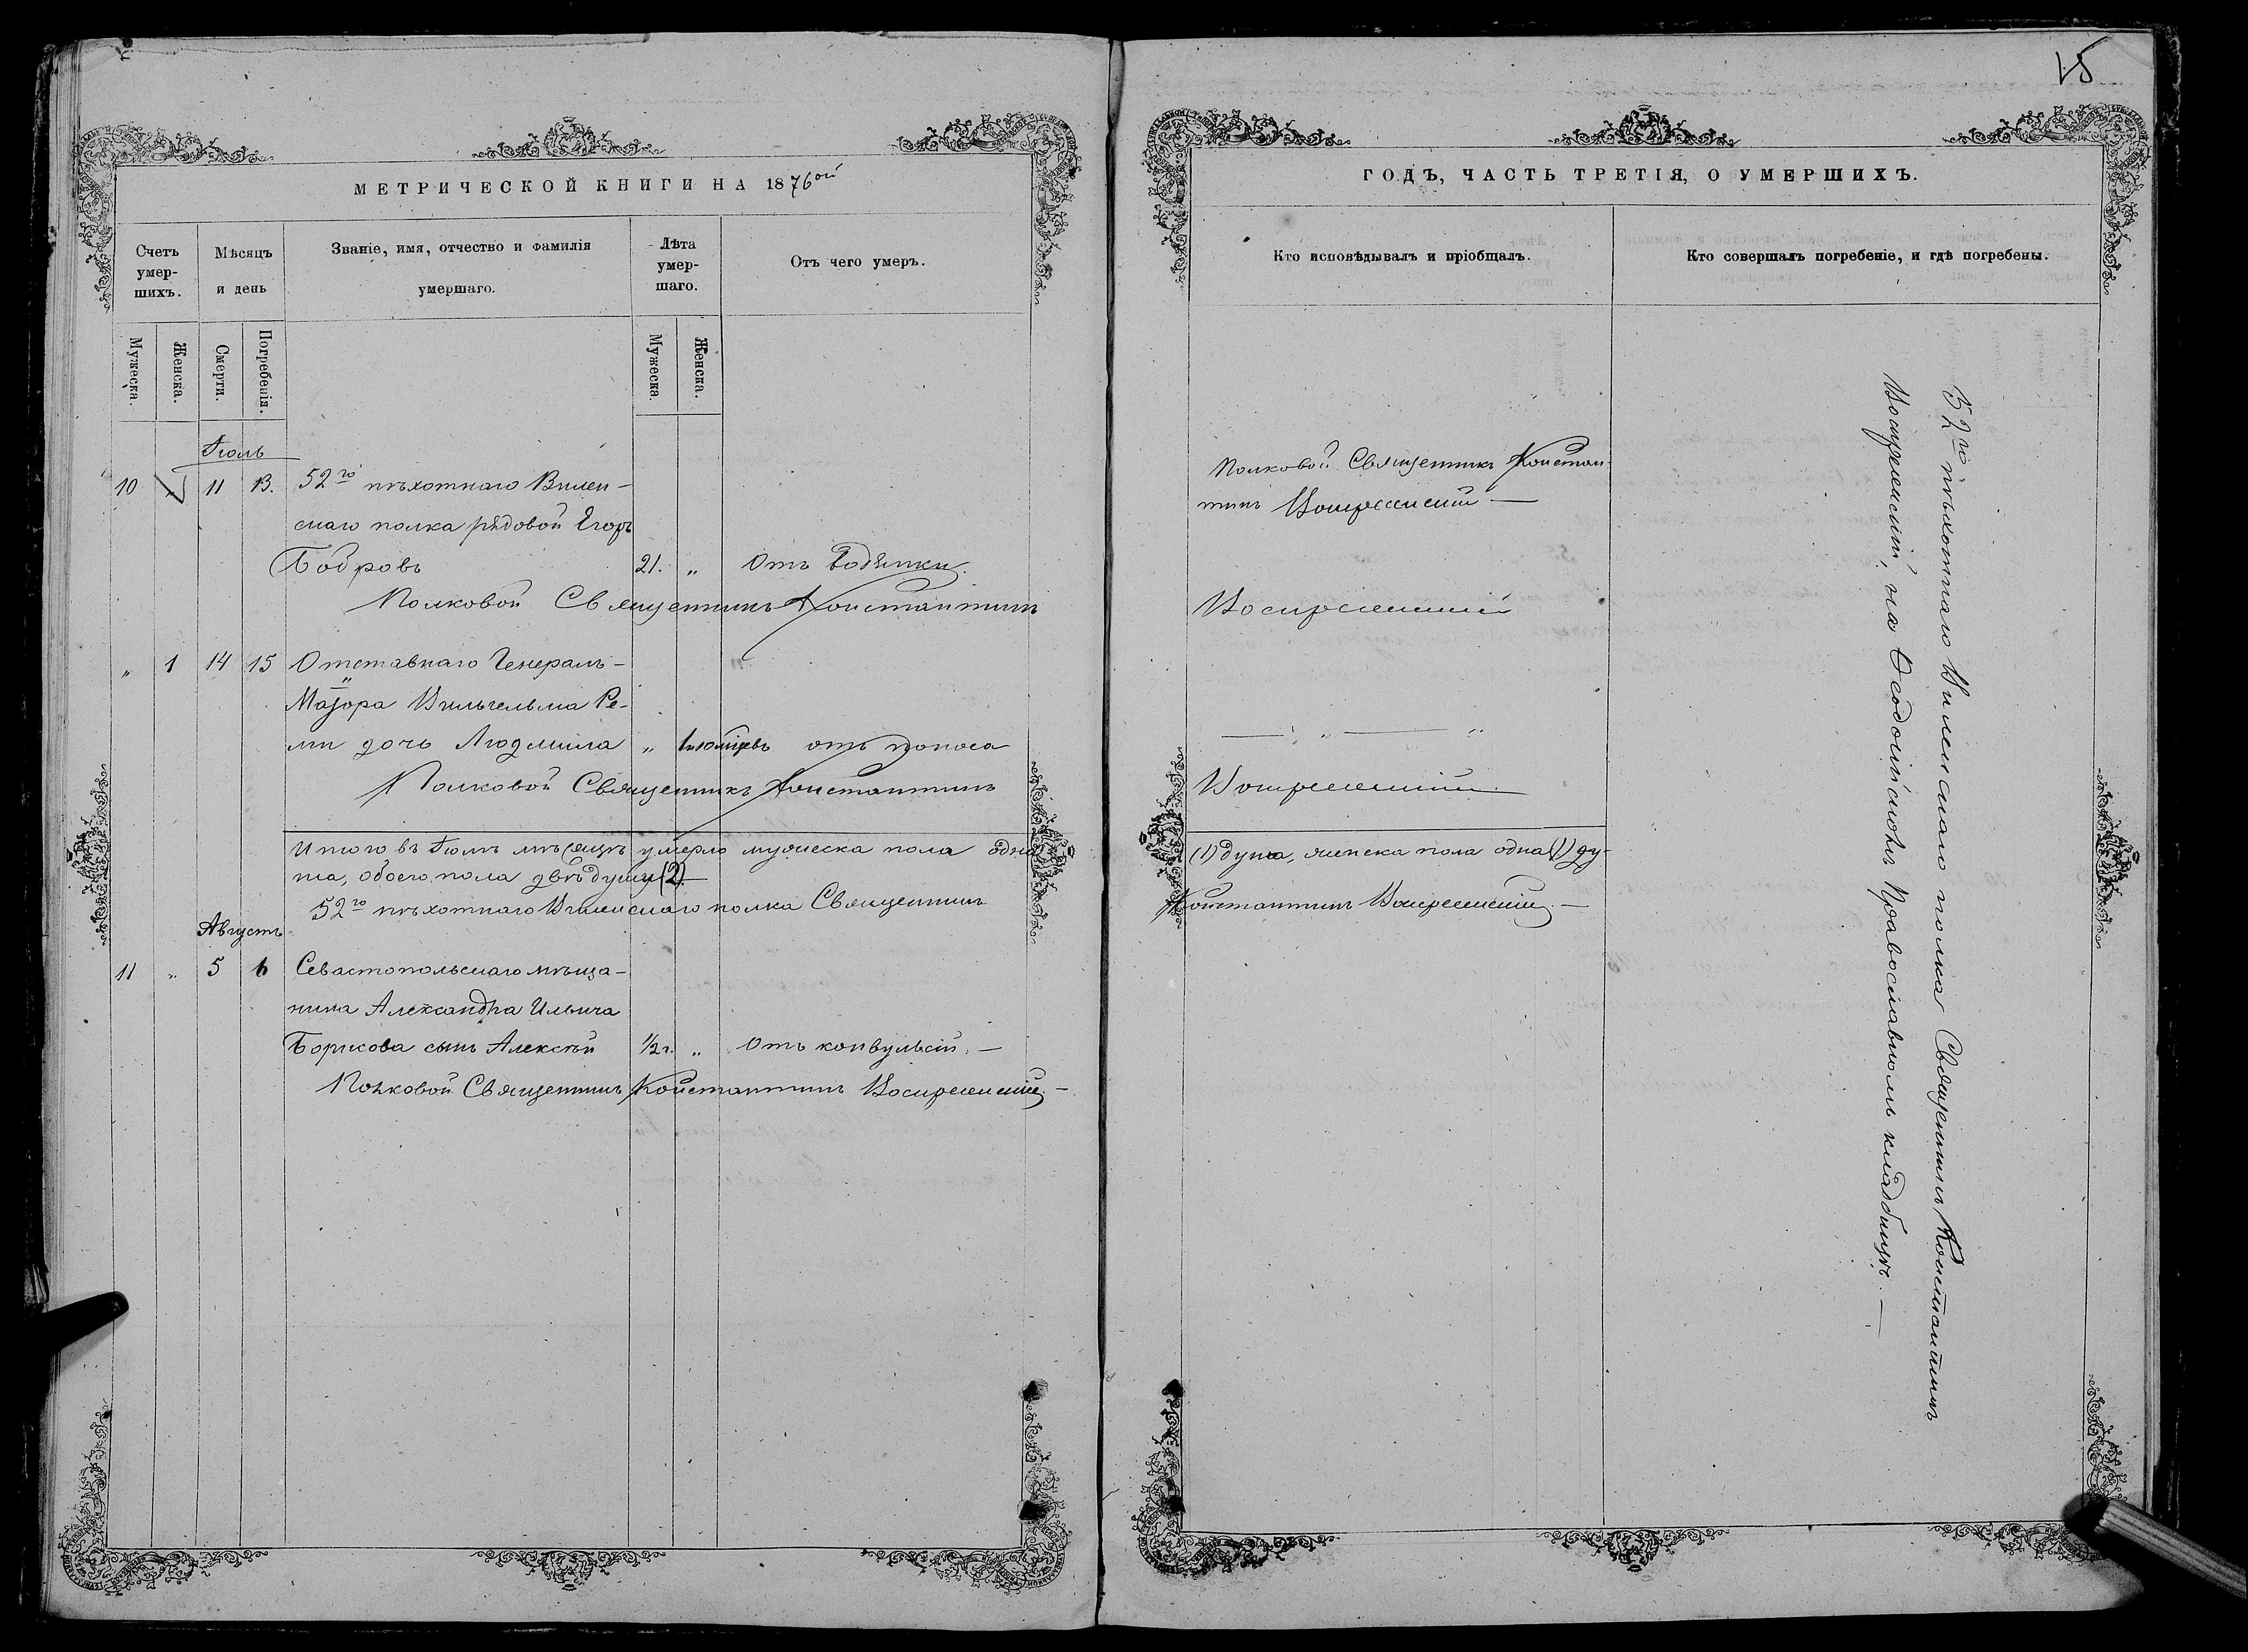 МЕТРИЧЕСКОЙ КНИГИ НА 1876ой
Счетъ умер-шихъ.
Мѣсяцъ и день
Званіе, имя, отчество и фамилія умершаго.
Лѣта умер-шаго.
Отъ чего умеръ.
Мужеска.
Женска.
Смерти.
Погребенія.
Мужеска.
Женска.
Іюль
10 11 13. 52го пѣхотнаго Вилен-
скаго полка рядовой Егоръ
Бобровъ 21. „ Отъ водянки.
Полковой Священникъ Константинъ
„ 1 14 15 Отставнаго Генералъ-
Маіора Вильгельма Ре-
ми дочь Людмила „ отъ поноса
Полковой Священникъ Константинъ
Итого въ Іюлѣ мѣсяцѣ умерло мужеска пола одна
ша, обоего пола двѣ души (2).
52го пѣхотнаго Виленскаго полка Священникъ
Августъ
11 „ 5 6 Севастопольскаго мѣща-
нина Александра Ильича
Борисова сынъ Алексѣй 1/2 г. „ Отъ конвульсій. —
Полковой Священникъ Константинъ Воскресенскій —
25
ГОДЪ, ЧАСТЬ ТРЕТІЯ, О УМЕРШИХЪ.
Кто исповѣдывалъ и пріобщалъ.
Кто совершалъ погребеніе, и гдѣ погребены.
Полковой Священникъ Констан-
тинъ Воскресенскій —
Воскресенскій
— „ — „
Воскресенскій
(1) душа, женска пола одна (1) ду-
Константинъ Воскресенскій. —
52го пѣхотнаго Виленскаго полка Священникъ Константинъ
Воскресенскій, на Ѳеодосійскомъ Православномъ кладбищѣ. —